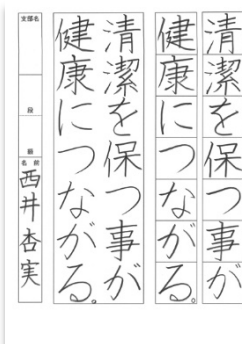 清潔を保つ事が
健康につながる。
清潔を保つ事が
健康につながる。
支部名
段
級
名前
西井杏実